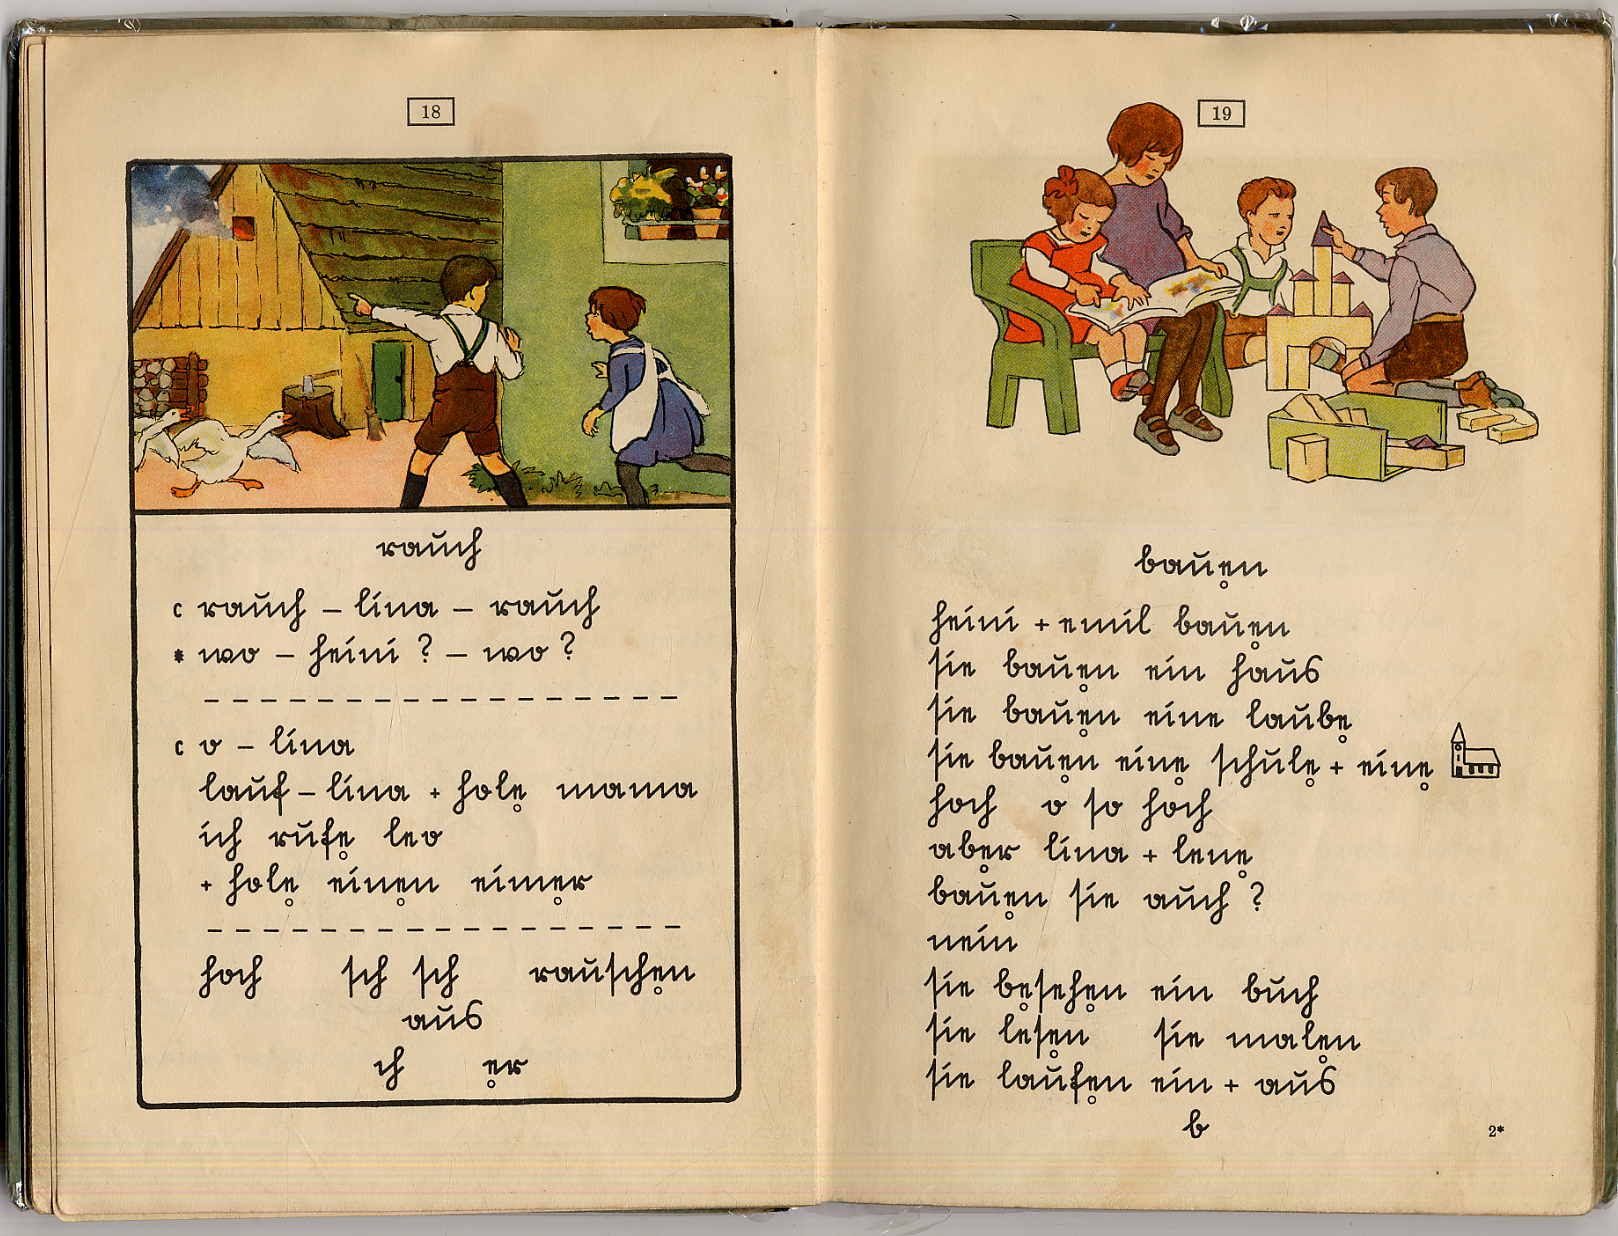 18
rauch
c rauch – lina – rauch
* wo – heini ? – wo ?
– – – – – – – – – – – – – – – – –
c o – lina
lauf – lina + hole mama
ich rufe leo
+ hole einen eimer
– – – – – – – – – – – – – – – – –
hoch sch sch rauschen
aus
ch er
19
bauen
heini + emil bauen
sie bauen ein haus
sie bauen eine laube
sie bauen eine schule + eine
hoch o so hoch
aber lina + lene
bauen sie auch ?
nein
sie besehen ein buch
sie lesen sie malen
sie laufen ein + aus
b
2*